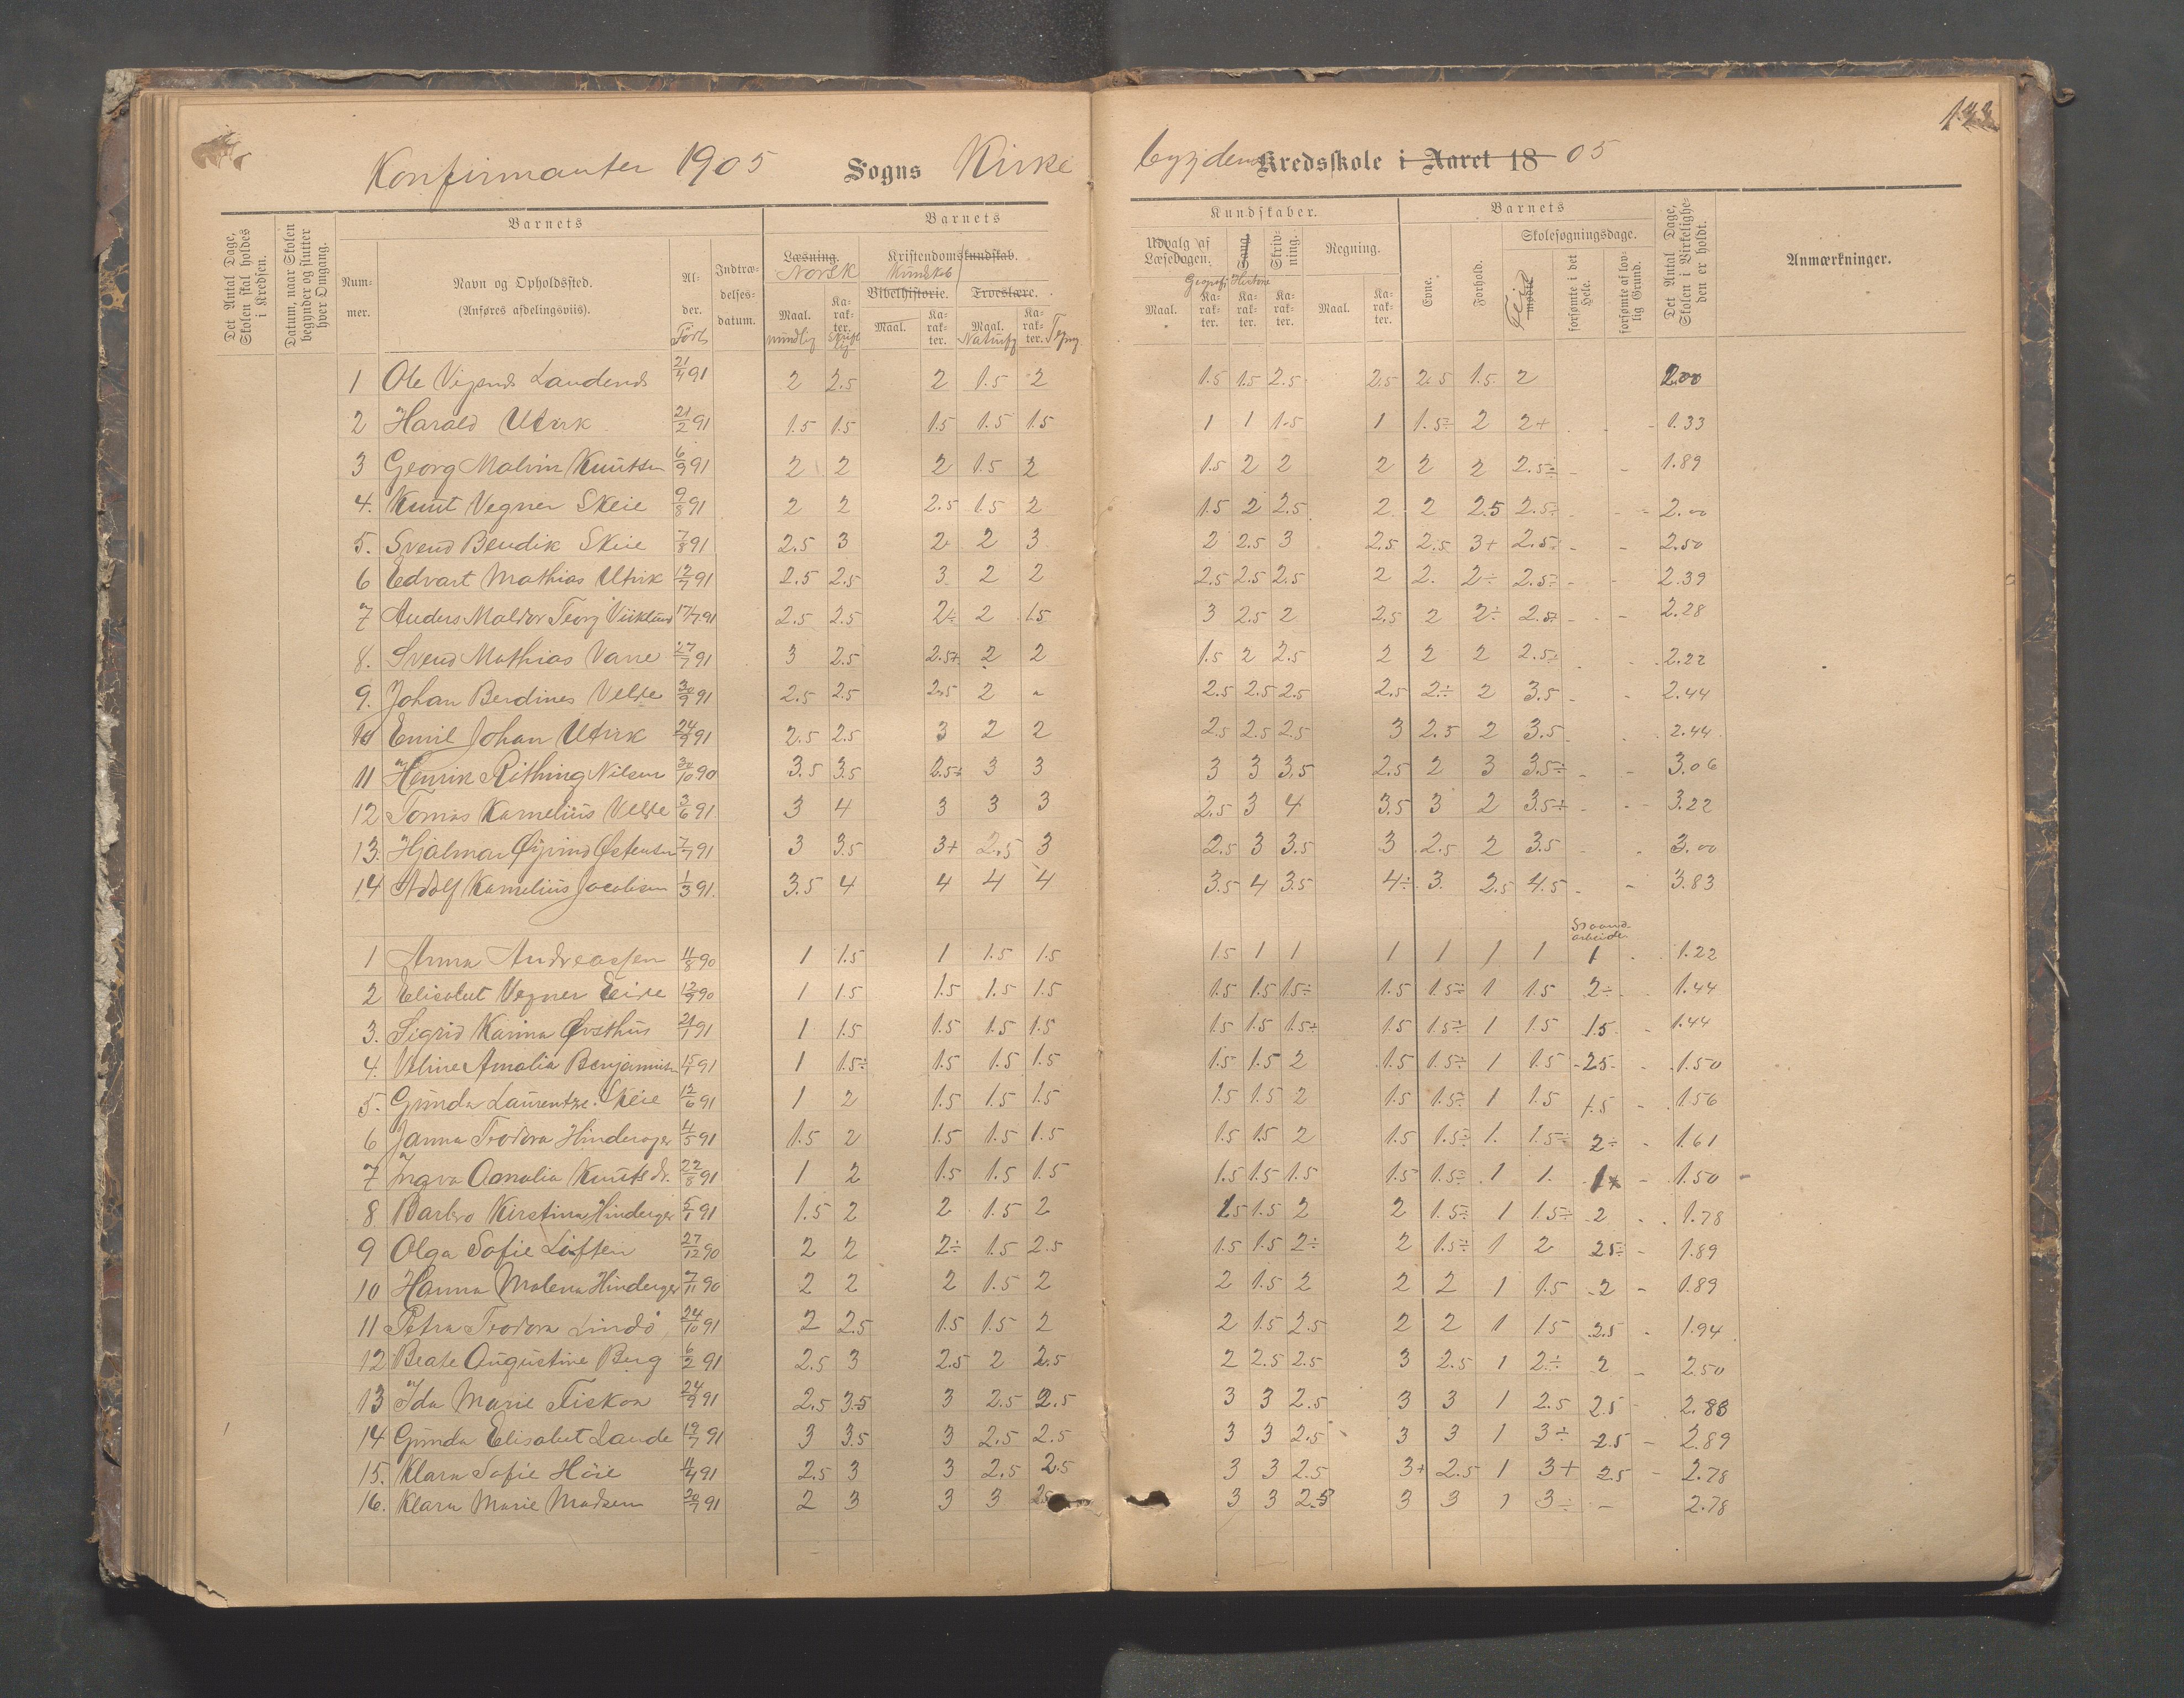 Konfirmanter 1905 Sogns Kirke bygdens Kredsskole i Aaret 18 05
Det Antal Dage, Skolen skal holdes i Kredsen.
Datum, naar Skolen begynder og slutter hver Omgang.
Barnets
Nummer.
Navn og Opholdssted.
(Anføres afdelingsviis).
Alder.
Født
Indtrædelsesdatum.
Barnets
Læsning. Norsk
Maal. mundlig
Karakter. Skriftlig
Kristendomskundskab.
Bibelhistorie.
Maal.
Karakter.
Troeslære.
Maal. Naturfg
Karakter. Tegng
Kundskaber.
Udvalg af Læsebogen.
Maal.
Geografi
Karakter.
Sang. Historie
Karakter.
Skrivning.
Karakter.
Regning.
Maal.
Karakter.
Barnets
Evne.
Forhold.
Skolesøgningsdage.
mødte
forsømte i det Hele.
forsømte af lovlig Grund.
Det Antal Dage, Skolen i Virkeligheden er holdt.
Anmærkninger.
1 Ole Vigsnds Landends 21/4 91 2 2.5 2 1.5 2 1.5 1.5 2.5 2.5 2.5 1.5 2 2.00
2 Harald Utvik 21/2 91 1.5 1.5 1.5 1.5 1.5 1 1 1.5 1 1.5÷ 2 2+ 1.33
3 Georg Malvin Knutsen 6/9 91 2 2 2 1.5 2 1.5 2 2 2 2 2 2.5÷ - - 1.89
4. Knut Vegner Skeie 9/8 91 2 2 2.5 1.5 2 1.5 2 2.5 2 2 2.5 2.5÷ - - 2.00
5. Svend Bendik Skeie 7/8 91 2.5 3 2 2 3 2 2.5 3 2.5 2.5 3+ 2.5÷ - - 2.50
6 Edvart Mathias Utvik 12/7 91 2.5 2.5 3 2 2 2.5 2.5 2.5 2 2. 2÷ 2.5÷ - - 2.39
7 Anders Maldor Georg Viiklund 17/7 91 2.5 2.5 2÷ 2 1.5 3 2.5 2 2.5 2 2÷ 2.5+ - - 2.28
8. Svend Mathias Vare 27/7 91 3 2.5 2.5+ 2 2 1.5 2 2.5 2 2 2 2.5÷ 2.22
9. Johan Berdines Velde 30/9 91 2.5 2.5 2.5 2 " 2.5 2.5 2.5 2.5 2÷ 2 3.5 - - 2.44
10 Emil Johan Utvik 24/9 91 2.5 2.5 3 2 2 2.5 2.5 2.5 3 2.5 2 3.5 2.44
11 Henrik Rithing Nilsen 30/10 90 3.5 3.5 2.5÷ 3 3 3 3 3.5 2.5 2 3 3.5÷ - - 3.06
12 Tomas Kornelius Velde 3/6 91 3 4 3 3 3 2.5 3 4 3.5 3 2 3.5+ - - 3.22
13. Hjalmar Øivind Østensen 7/7 91 3 3.5 3+ 2.5 3 2.5 3 3.5 3 2.5 2 3.5 - 3.00
14 Adolf Kornelius Jacobsen 1/3 91 3.5 4 4 4 4 3.5 4 3.5 4÷ 3. 2.5 4.5 - - 3.83
Haandarbeide
1 Anna Andreassen 11/8 90 1 1.5 1 1.5 1.5 1.5 1 1 1 1 1 1 1 1.22
2 Elisabet Vegner Eide 12/9 90 1 1.5 1.5 1.5 1.5 1.5 1.5 1.5÷ 1.5 1.5÷ 1 1.5 2÷ 1.44
3. Sigrid Karina Østhus 21/1 91 1 1.5 1.5 1.5 1.5 1.5 1.5 1.5+ 1.5 1.5÷ 1 1.5 1.5 1.44
4. Veline Amalia Benjaminsen 15/1 91 1 1.5÷ 1.5 1.5 1.5 1.5 1.5 2 1.5 1.5÷ 1 1.5 2.5 1.50
5. Gunda Laurentze Skeie 12/6 91 1 2 1.5 1.5 1.5 1.5 1.5 2 1.5 1.5÷ 1 1.5 1.5 - 1.56
6 Janna Trodora Hinderager 4/5 91 1.5 2 1.5 1.5 1.5 1.5 1.5 2 1.5 1.5÷ 1. 1.5÷ 2÷ - 1.61
7 Ingva Amalia Knutsdr. 22/8 91 1 2 1.5 1.5 1.5 1.5 1.5 1.5 1.5 1.5÷ 1 1. 1+ - 1.50
8 Barbro Kirstina Hinderager 5/1 91 1.5 2 2 1.5 2 1.5 1.5 2 2 1.5÷ 1 1.5÷ 2 1.78
9 Olga Sofie Liften 27/12 90 2 2 2÷ 1.5 2.5 1.5 1.5 2÷ 2 1.5÷ 1 2 2.5÷ - 1.89
10 Hanna Malena Hinderager 7/11 90 2 2 2 1.5 2 2 1.5 2 2 2 1 1.5 2 - 1.89
11 Petra Trodora Lindø 24/10 91 2 2.5 1.5 1.5 2 2 1.5 2.5 2 2 1 1.5 2.5 - 1.94
12 Beate Augustine Berg 6/2 91 2.5 3 2.5 2 2.5 2 2.5 2.5 3 2.5 1 2÷ 2 - 2.50
13 Ida Marie Fiskaa 24/9 91 2.5 3.5 3 2.5 2.5 3 3 2.5 3 3 1 2.5 2.5 - 2.83
14 Gunda Elisabet Lande 19/7 91 3 3.5 3 2.5 2.5 3 3 2.5 3 3 1 3÷ 2.5 - 2.89
15. Klara Sofie Höie 11/4 91 2.5 3 3 2.5 2.5 3 3 2.5 3+ 2.5 1 3+ 2.5 - 2.78
16. Klara Marie Madsen 20/7 91 2 3 3 3 2.5 3 3 2.5 3 3 1 3÷ - 2.78